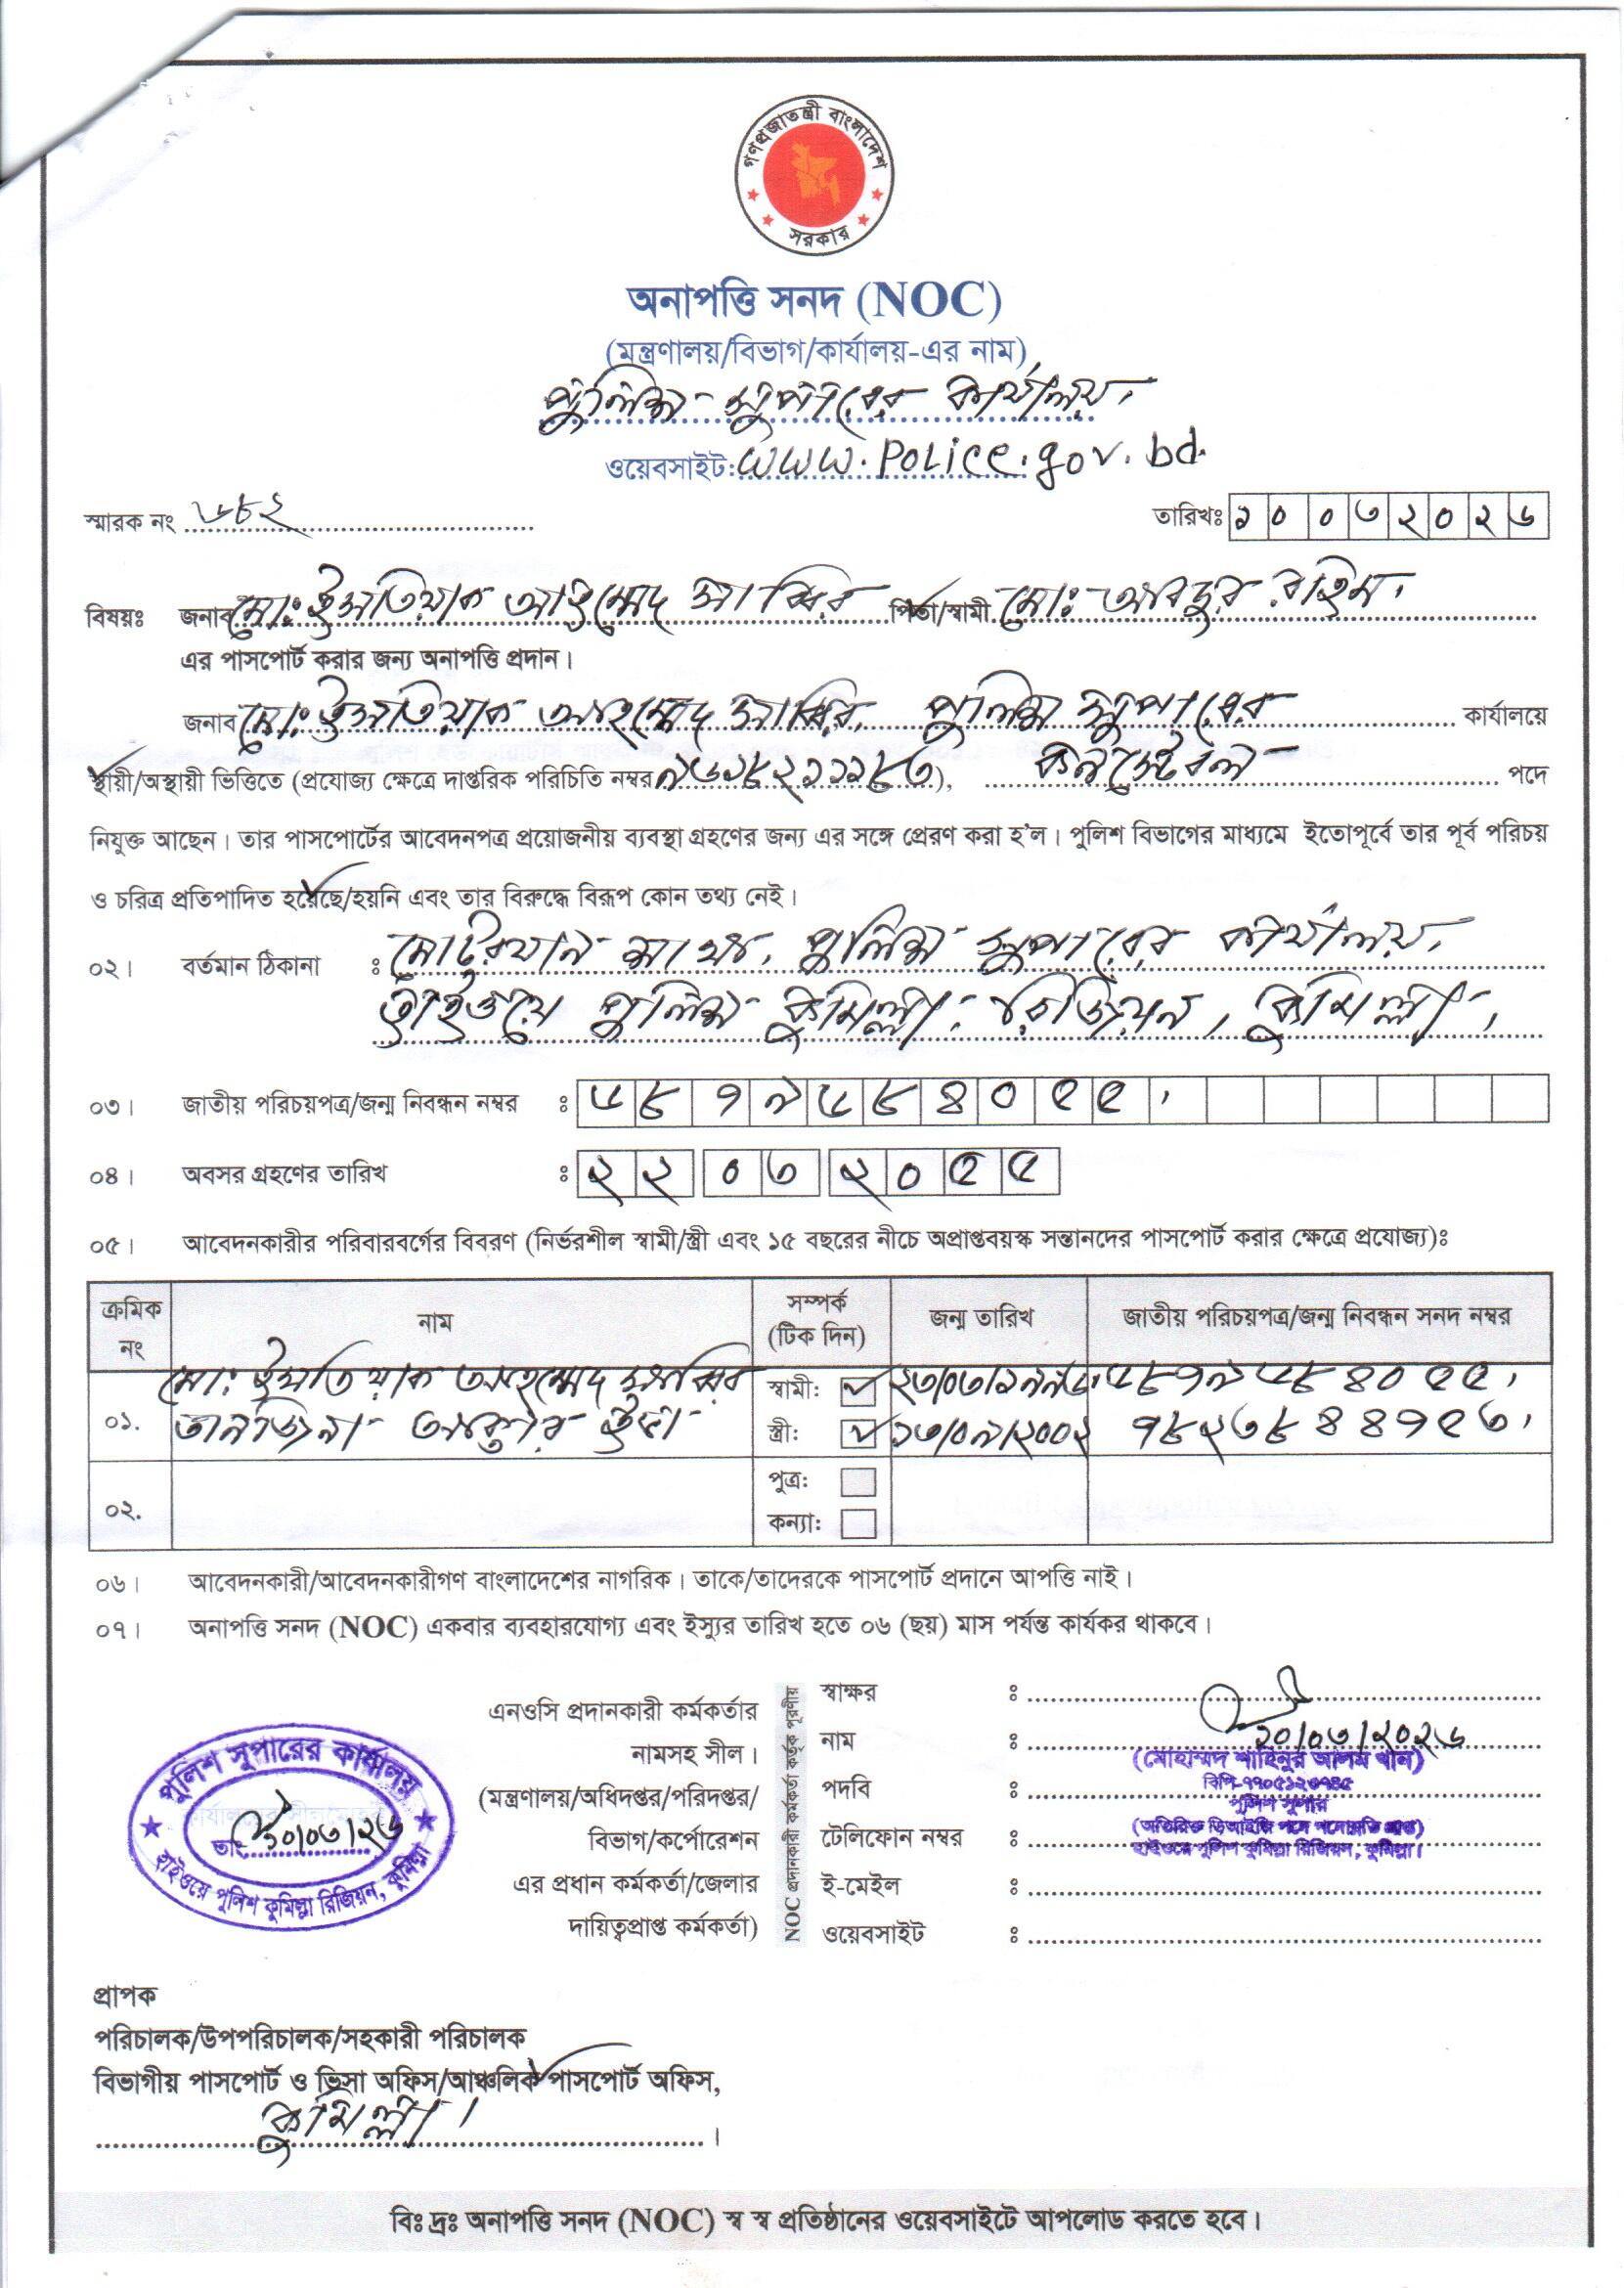 গণপ্রজাতন্ত্রী বাংলাদেশ
সরকার
অনাপত্তি সনদ (NOC)
(মন্ত্রণালয়/বিভাগ/কার্যালয়-এর নাম)
পুলিশ সুপারের কার্যালয়।
ওয়েবসাইট: www.police.gov.bd.
স্মারক নং ৬৮২ তারিখঃ ১০০৩২০২৬
বিষয়ঃ জনাব মোঃ ইসতিয়াক আহম্মেদ সাব্বির পিতা/স্বামী মোঃ আবদুর রহিম।
এর পাসপোর্ট করার জন্য অনাপত্তি প্রদান।
জনাব মোঃ ইসতিয়াক আহম্মেদ সাব্বির, পুলিশ সুপারের কার্যালয়ে
স্থায়ী/অস্থায়ী ভিত্তিতে (প্রযোজ্য ক্ষেত্রে দাপ্তরিক পরিচিতি নম্বর ), কনস্টেবল পদে
নিযুক্ত আছেন। তার পাসপোর্টের আবেদনপত্র প্রয়োজনীয় ব্যবস্থা গ্রহণের জন্য এর সঙ্গে প্রেরণ করা হ'ল। পুলিশ বিভাগের মাধ্যমে ইতোপূর্বে তার পূর্ব পরিচয়
ও চরিত্র প্রতিপাদিত হয়েছে/হয়নি এবং তার বিরুদ্ধে বিরূপ কোন তথ্য নেই।
০২। বর্তমান ঠিকানা ঃ মোটরযান শাখা, পুলিশ সুপারের কার্যালয়,
হাইওয়ে পুলিশ কুমিল্লা রিজিয়ন, কুমিল্লা।
০৩। জাতীয় পরিচয়পত্র/জন্ম নিবন্ধন নম্বর ঃ ৬৮৭৯৬৮৪০৫৫
০৪। অবসর গ্রহণের তারিখ ঃ ২২০৩২০৫৫
০৫। আবেদনকারীর পরিবারবর্গের বিবরণ (নির্ভরশীল স্বামী/স্ত্রী এবং ১৫ বছরের নীচে অপ্রাপ্তবয়স্ক সন্তানদের পাসপোর্ট করার ক্ষেত্রে প্রযোজ্য)ঃ
ক্রমিক নং নাম সম্পর্ক (টিক দিন) জন্ম তারিখ জাতীয় পরিচয়পত্র/জন্ম নিবন্ধন সনদ নম্বর
মোঃ ইসতিয়াক আহম্মেদ সাব্বির স্বামী: ২৩/০৩/১৯৯৬ ৬৮৭৯৬৮৪০৫৫
০১. তানজিনা আক্তার ইভা স্ত্রী: ১৩/০৯/২০০২ ৭৮২৩৮৪৪৭৫৩
০২. পুত্র:
কন্যা:
০৬। আবেদনকারী/আবেদনকারীগণ বাংলাদেশের নাগরিক। তাকে/তাদেরকে পাসপোর্ট প্রদানে আপত্তি নাই।
০৭। অনাপত্তি সনদ (NOC) একবার ব্যবহারযোগ্য এবং ইস্যুর তারিখ হতে ০৬ (ছয়) মাস পর্যন্ত কার্যকর থাকবে।
এনওসি প্রদানকারী কর্মকর্তার
নামসহ সীল।
(মন্ত্রণালয়/অধিদপ্তর/পরিদপ্তর/
বিভাগ/কর্পোরেশন
এর প্রধান কর্মকর্তা/জেলার
দায়িত্বপ্রাপ্ত কর্মকর্তা)
NOC প্রদানকারী কর্মকর্তা কর্তৃক পূরণীয়
স্বাক্ষর ঃ
নাম ঃ ১০/০৩/২০২৬
পদবি ঃ
টেলিফোন নম্বর ঃ
ই-মেইল ঃ
ওয়েবসাইট ঃ
(মোহাম্মদ শাহিনুর আলম খান)
বিপি-৭৭০৫১২৩৭৪৫
পুলিশ সুপার
(অতিরিক্ত ডিআইজি পদে পদোন্নতি প্রাপ্ত)
হাইওয়ে পুলিশ কুমিল্লা রিজিয়ন, কুমিল্লা।
পুলিশ সুপারের কার্যালয়
তাং ১০/০৩/২৬
হাইওয়ে পুলিশ কুমিল্লা রিজিয়ন, কুমিল্লা
প্রাপক
পরিচালক/উপপরিচালক/সহকারী পরিচালক
বিভাগীয় পাসপোর্ট ও ভিসা অফিস/আঞ্চলিক পাসপোর্ট অফিস,
কুমিল্লা।
বিঃ দ্রঃ অনাপত্তি সনদ (NOC) স্ব স্ব প্রতিষ্ঠানের ওয়েবসাইটে আপলোড করতে হবে।